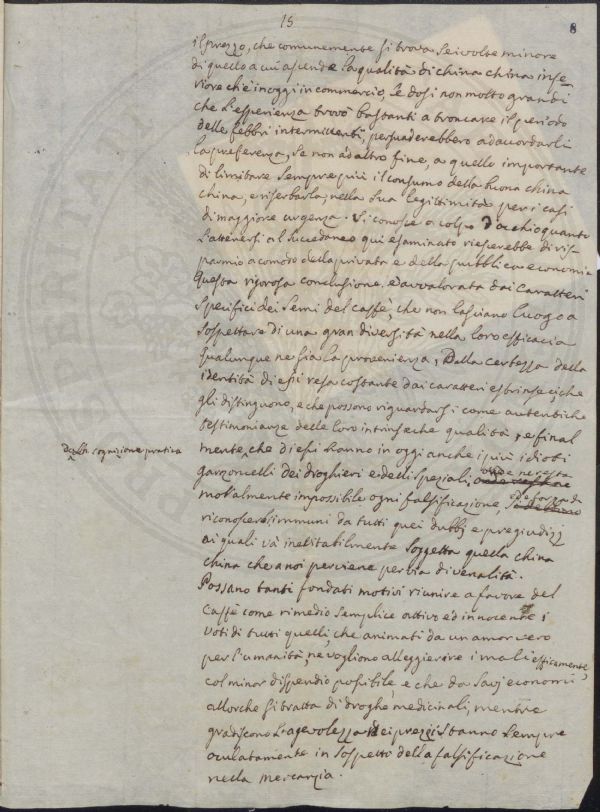 15
8
il prezzo, che comunemente si trova sei volte minore
di quello a cui ascende la qualità di china china infe-
riore che in oggi in commercio, le dosi non molto grandi
che l'esperienza trovò bastanti a troncare il periodo
delle febbri intermittenti, persuaderebbero ad accordarli
la preferenza, se non ad altro fine, a quello importante
di limitare sempre più il consumo della buona china
china, e riserbarla, nella sua legittimità per i casi
di maggiore urgenza. Si conosce a colpo d'occhio quanto
l'attenersi al succedaneo qui esaminato riescirebbe di ris-
parmio a comodo della privata e della pubblica economia
Questa rigorosa conclusione, è avvalorata dai caratteri
specifici dei semi del caffè, che non lasciano luogo a
sospettare di una gran diversità nella loro efficacia
qualunque ne sia la provenienza; Dalla certezza della
identità di essi resa costante dai caratteri estrinseci, che
gli distinguono, e che possono riguardarsi come autentiche
testimonianze delle loro intrinseche qualità, e final
mente, della cognizione pratica che di essi hanno in oggi anche i più idioti
garzoncelli dei droghieri e delli speziali, onde ne resta
moralmente impossibile ogni falsificazione,
riconoscersi immuni da tutti quei dubbj e pregiudizj
ai quali và inevitabilmente soggetta quella china
china che a noi perviene per via di venalità.
Possano tanti fondati motivi riunire a favore del
Caffè come rimedio semplice attivo ed innocente i
voti di tutti quelli, che animati da un amor vero
per l'umanità, ne vogliono alleggierire i mali efficacemente,
col minor dispendio possibile, e che da savj economi
allorche si tratta di droghe medicinali, mentre
gradiscono l'agevolezza dei prezzi stanno sempre
oculatamente in sospetto della falsificazione
nella mercanzia.